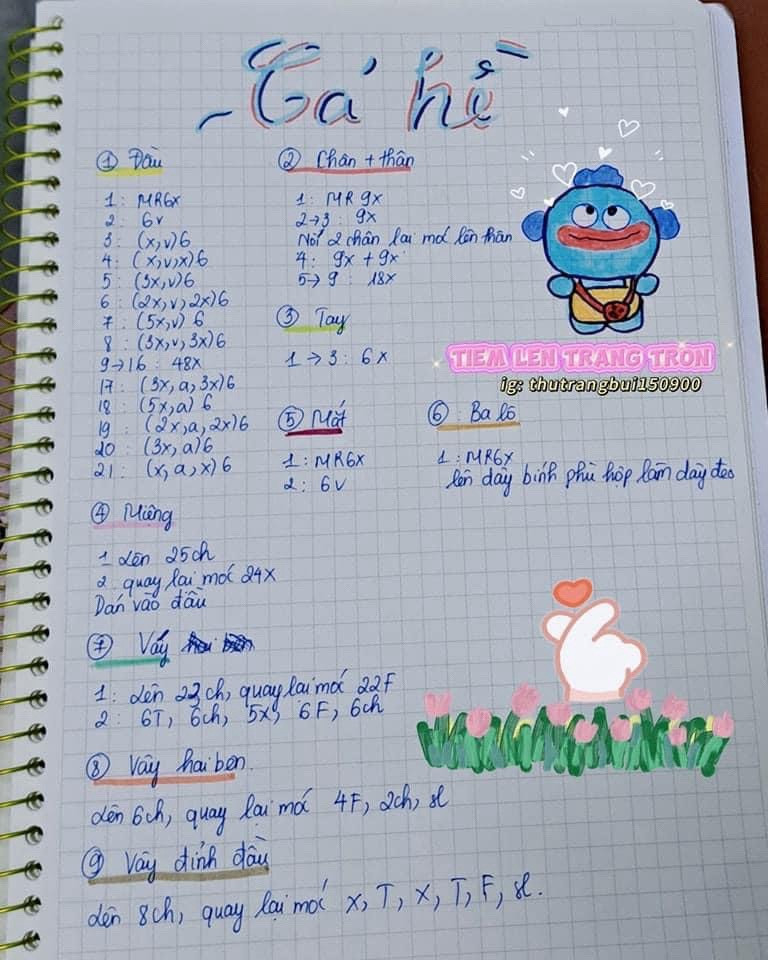 Cá hề
① Đầu
1 : MR6x
2 : 6v
3 : (x,v)6
4 : (x,v,x)6
5 : (3x,v)6
6 : (2x,v,2x)6
7 : (5x,v) 6
8 : (3x,v,3x)6
9→16 : 48x
17 : (3x,a,3x)6
18 : (5x,a) 6
19 : (2x,a,2x)6
20 : (3x,a)6
21 : (x,a,x)6
② Chân + thân
1 : MR 9x
2→3 : 9x
Nối 2 chân lại móc lên thân
4 : 9x + 9x
5→9 : 18x
③ Tay
1→3 : 6x
TIEM LEN TRANG TRON
ig: thutrangbui150900
⑤ Mắt
1 : MR6x
2 : 6v
⑥ : Ba lô
1 : MR6x
lên dây bính phù hợp làm dây đeo
④ Miệng
1 Lên 25ch
2 quay lại móc 24x
Dán vào đầu
⑦ Vấy
1 : Lên 23ch, quay lại móc 22F
2 : 6T, 6ch, 5x, 6F, 6ch
⑧ Vây hai bên.
Lên 6ch, quay lại móc 4F, 2ch, sl
⑨ Vây đỉnh đầu
Lên 8ch, quay lại móc x, T, x, T, F, sl.